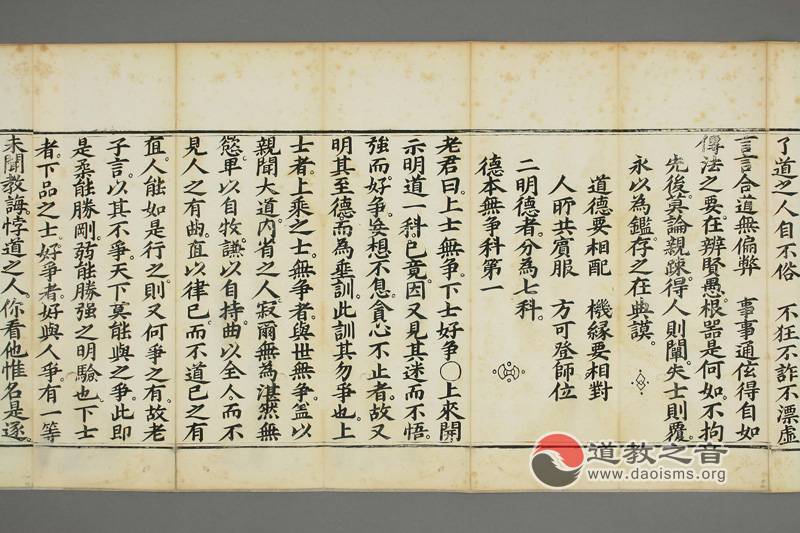 了道之人自不俗　不狂不詐不漂虛
言言合道無偏弊　事事通佐得自如
傳法之要在辨賢愚根器是何如不拘
先後莫論親疎得人則闡失士則覆
永以為鑑存之在典謨
道德要相配　機緣要相對
人所共賓服　方可登師位
二明德者分為七科
德本無爭科第一
老君曰上士無爭下士好爭○上來開
示明道一科已竟因又見其迷而不悟
強而好爭妄想不息貪心不止者故又
明其至德而為垂訓此訓其勿爭也上
士者上乘之士無爭者與世無爭盖以
親聞大道內省之人寂爾無為湛然無
慾卑以自牧謙以自持曲以全人而不
見人之有曲直以律已而不道已之有
直人能如是行之則又何爭之有故老
子言以其不爭天下莫能與之爭此即
是柔能勝剛弱能勝強之明驗也下士
者下品之士好爭者好與人爭有一等
未聞教誨悖道之人你看他惟名是逐
道教之音
www.daoisms.org